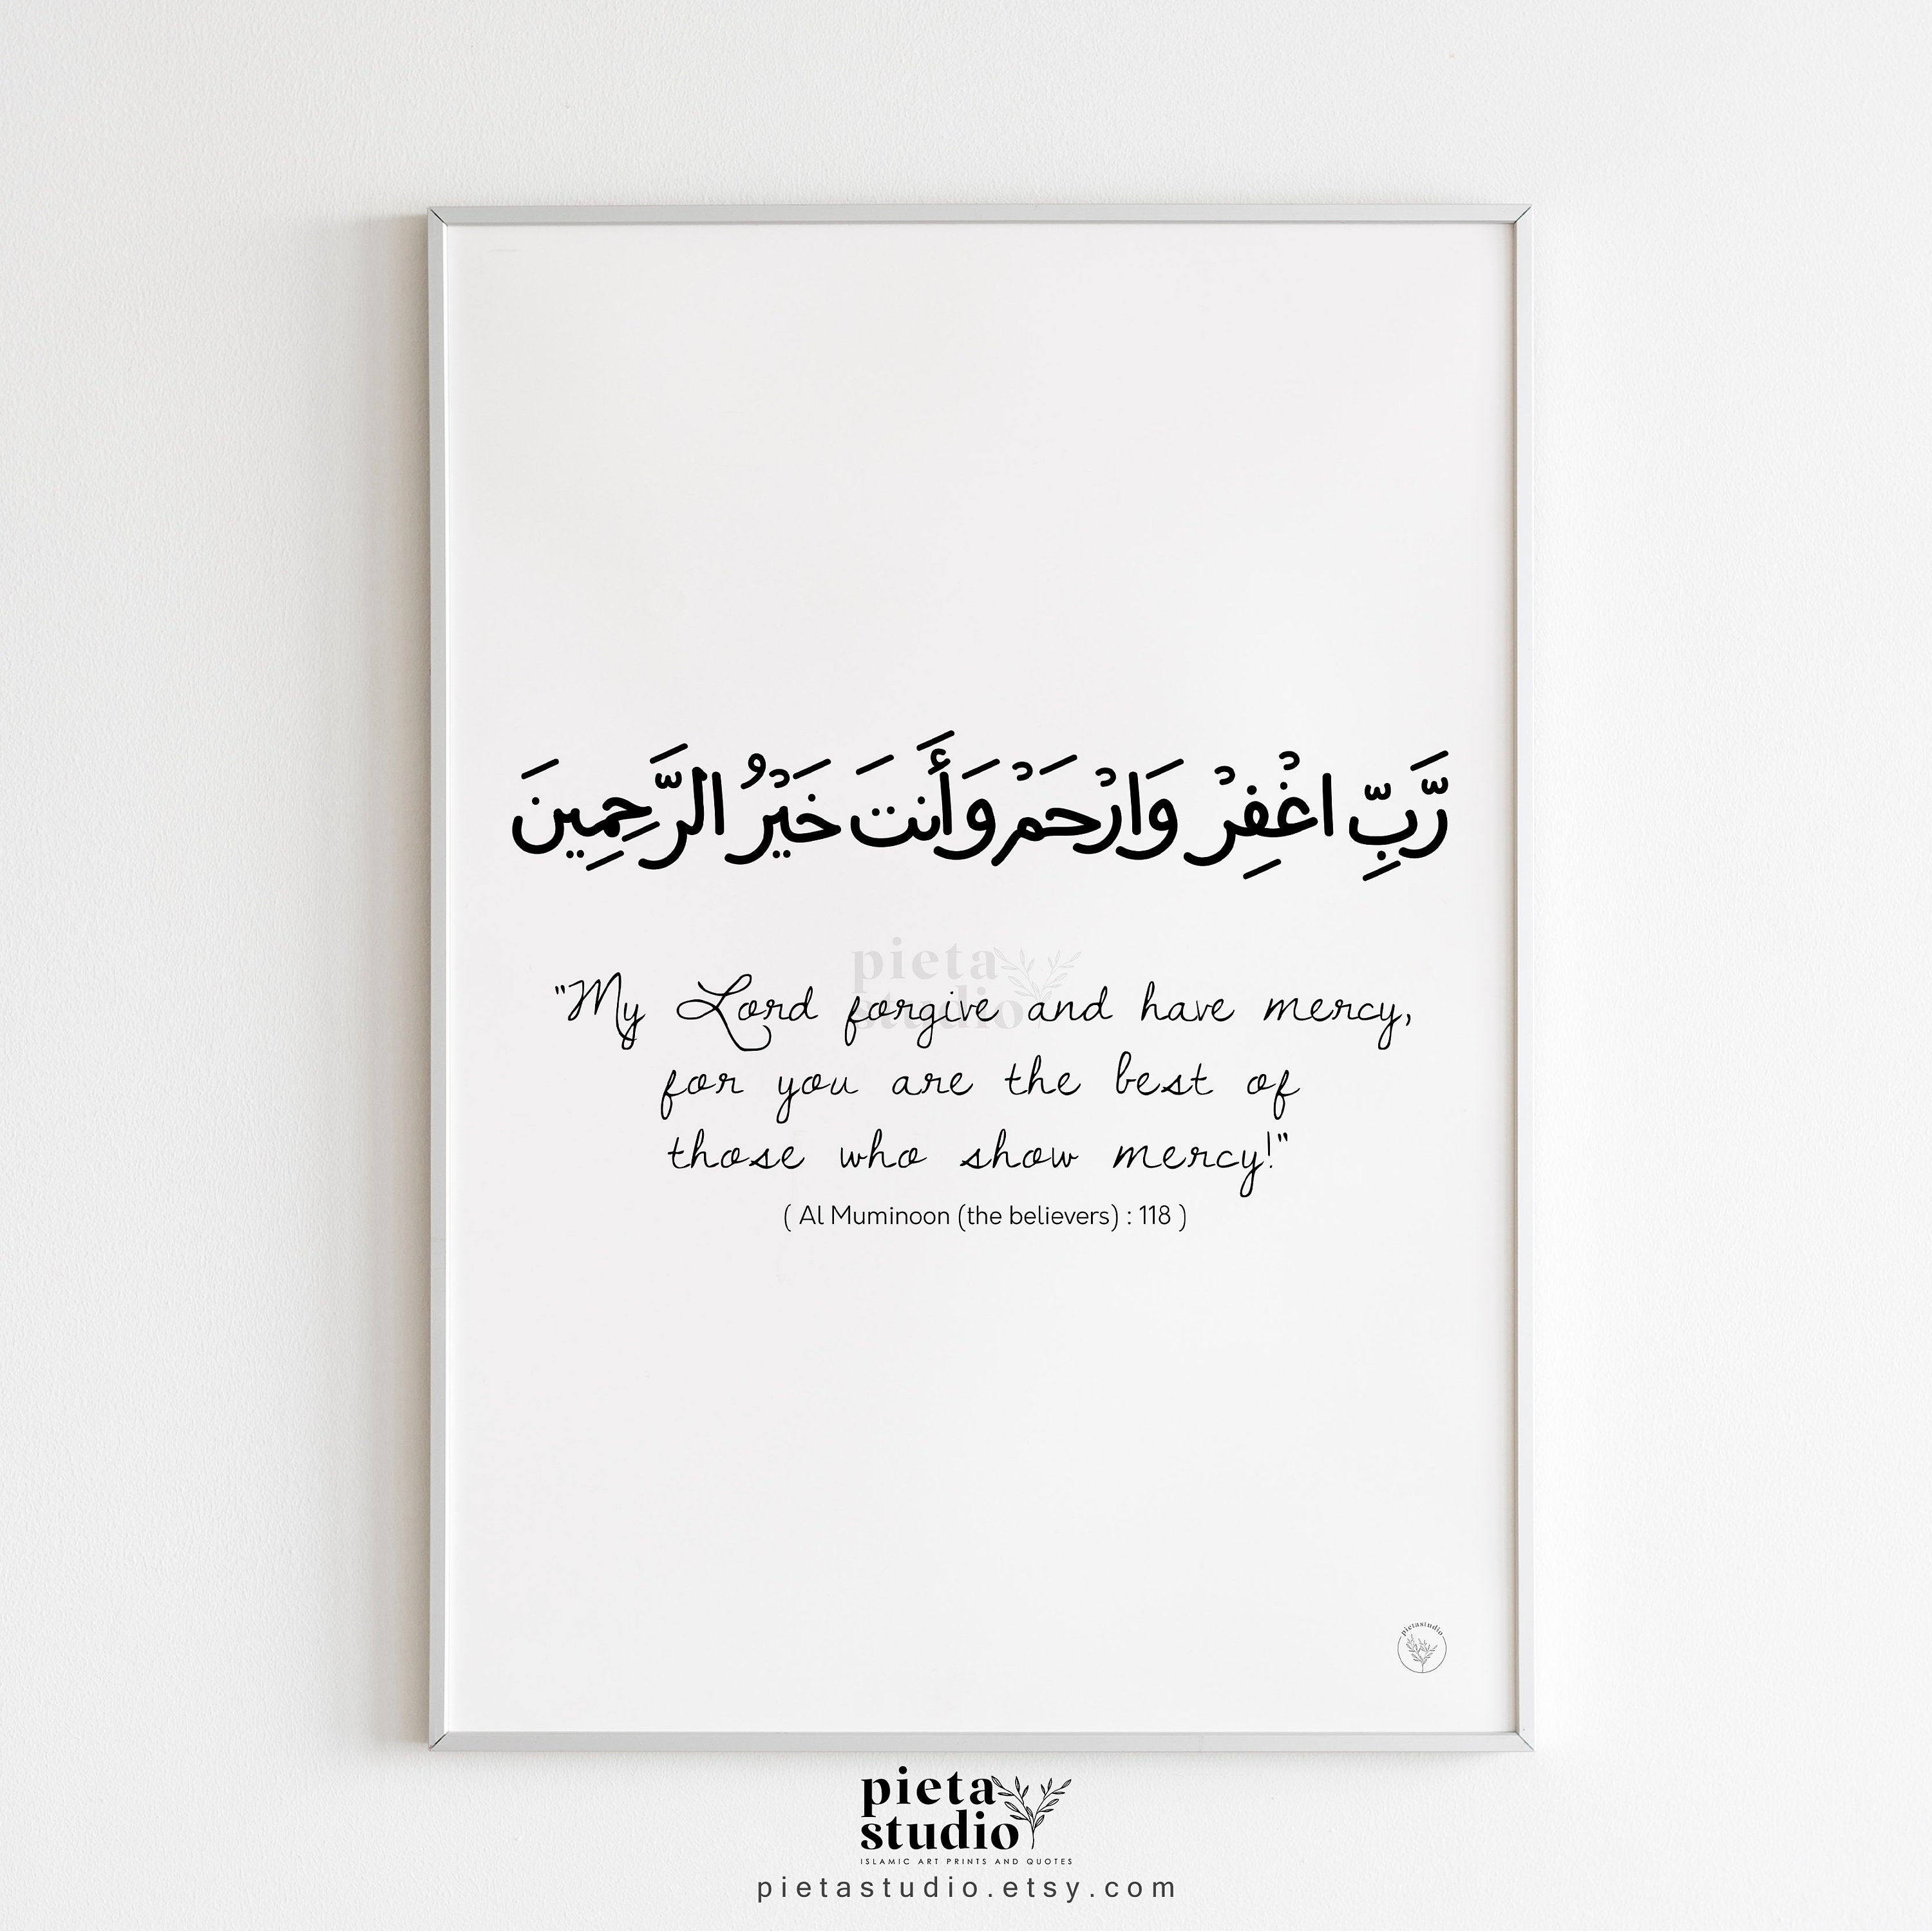 رَّبِّ اغْفِرْ وَارْحَمْ وَأَنتَ خَيْرُ الرَّحِمِينَ
pieta
studio
"My Lord forgive and have mercy,
for you are the best of
those who show mercy!"
( Al Muminoon (the believers) : 118 )
pietastudio
pieta
studio
ISLAMIC ART PRINTS AND QUOTES
pietastudio.etsy.com